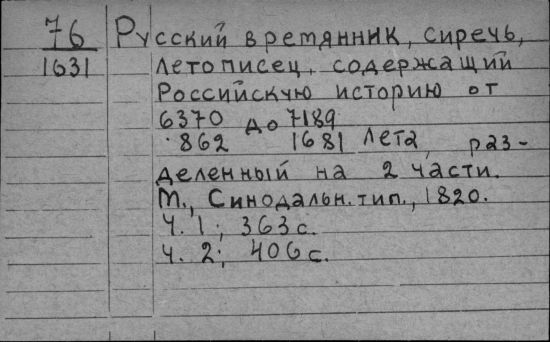 76 Русский времянник, сиречь,
1631 Летописец, содержащий
Российскую историю от
6370 до 7189
862 1681 Лета, раз-
деленный на 2 части.
М., Синодальн. тип., 1820.
Ч. 1; 363 с.
Ч. 2; 406 с.